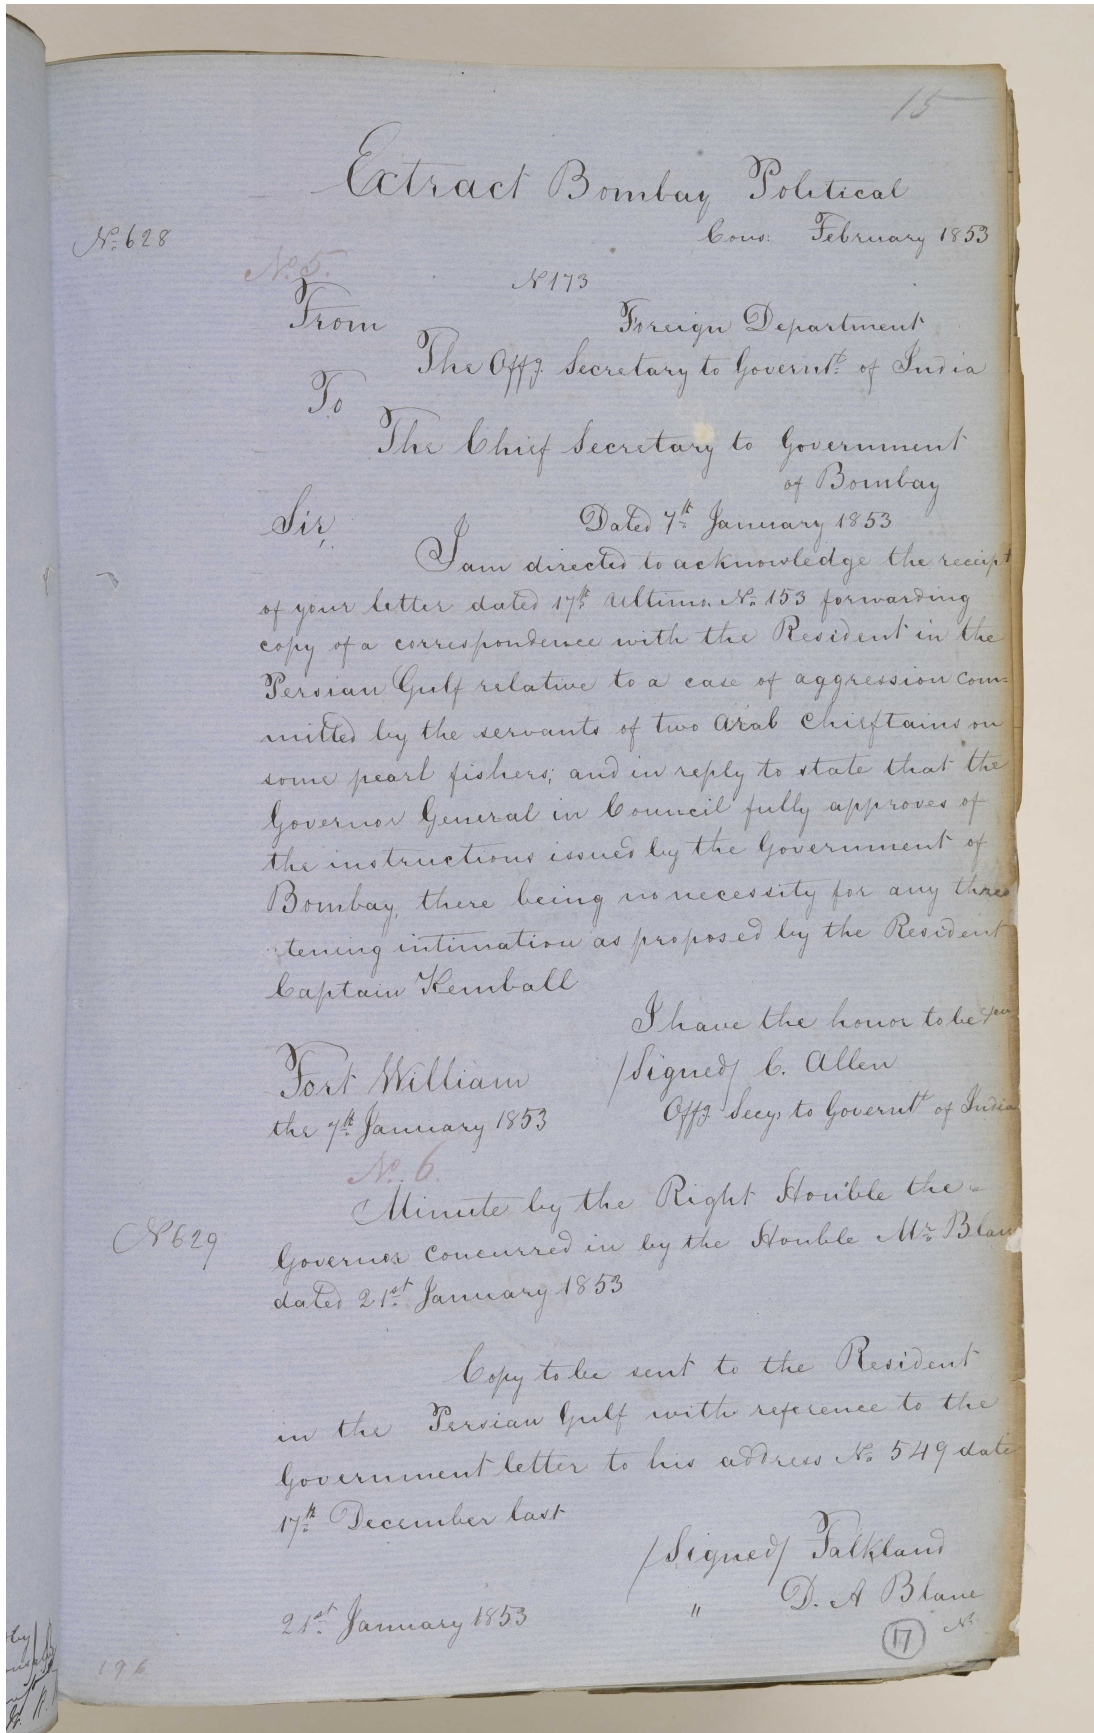 15
Extract Bombay Political
No. 628
Cons: February 1853
No. 5.
No 173
From
Foreign Department
The Offg. Secretary to Governt. of India
To
The Chief Secretary to Government
of Bombay
Sir,
Dated 7th January 1853
I am directed to acknowledge the receipt
of your letter dated 17th Ultimo No. 153 forwarding
copy of a correspondence with the Resident in the
Persian Gulf relative to a case of aggression com=
mitted by the servants of two Arab Chieftains on
some pearl fishers; and in reply to state that the
Governor General in Council fully approves of
the instructions issued by the Government of
Bombay, there being no necessity for any threa
tening intimation as proposed by the Resident
Captain Kemball
I have the honor to be
Fort William
/Signed/ C. Allen
the 7th January 1853
Offg Secy. to Governt of India
No. 6.
Minute by the Right Honble the
No 629
Governor concurred in by the Honble Mr. Blan
dated 21st January 1853
Copy to be sent to the Resident
in the Persian Gulf with reference to the
Government letter to his address No. 549 date
17th December last
/Signed/ Falkland
" D. A Blane
21st January 1853
17
No.
196